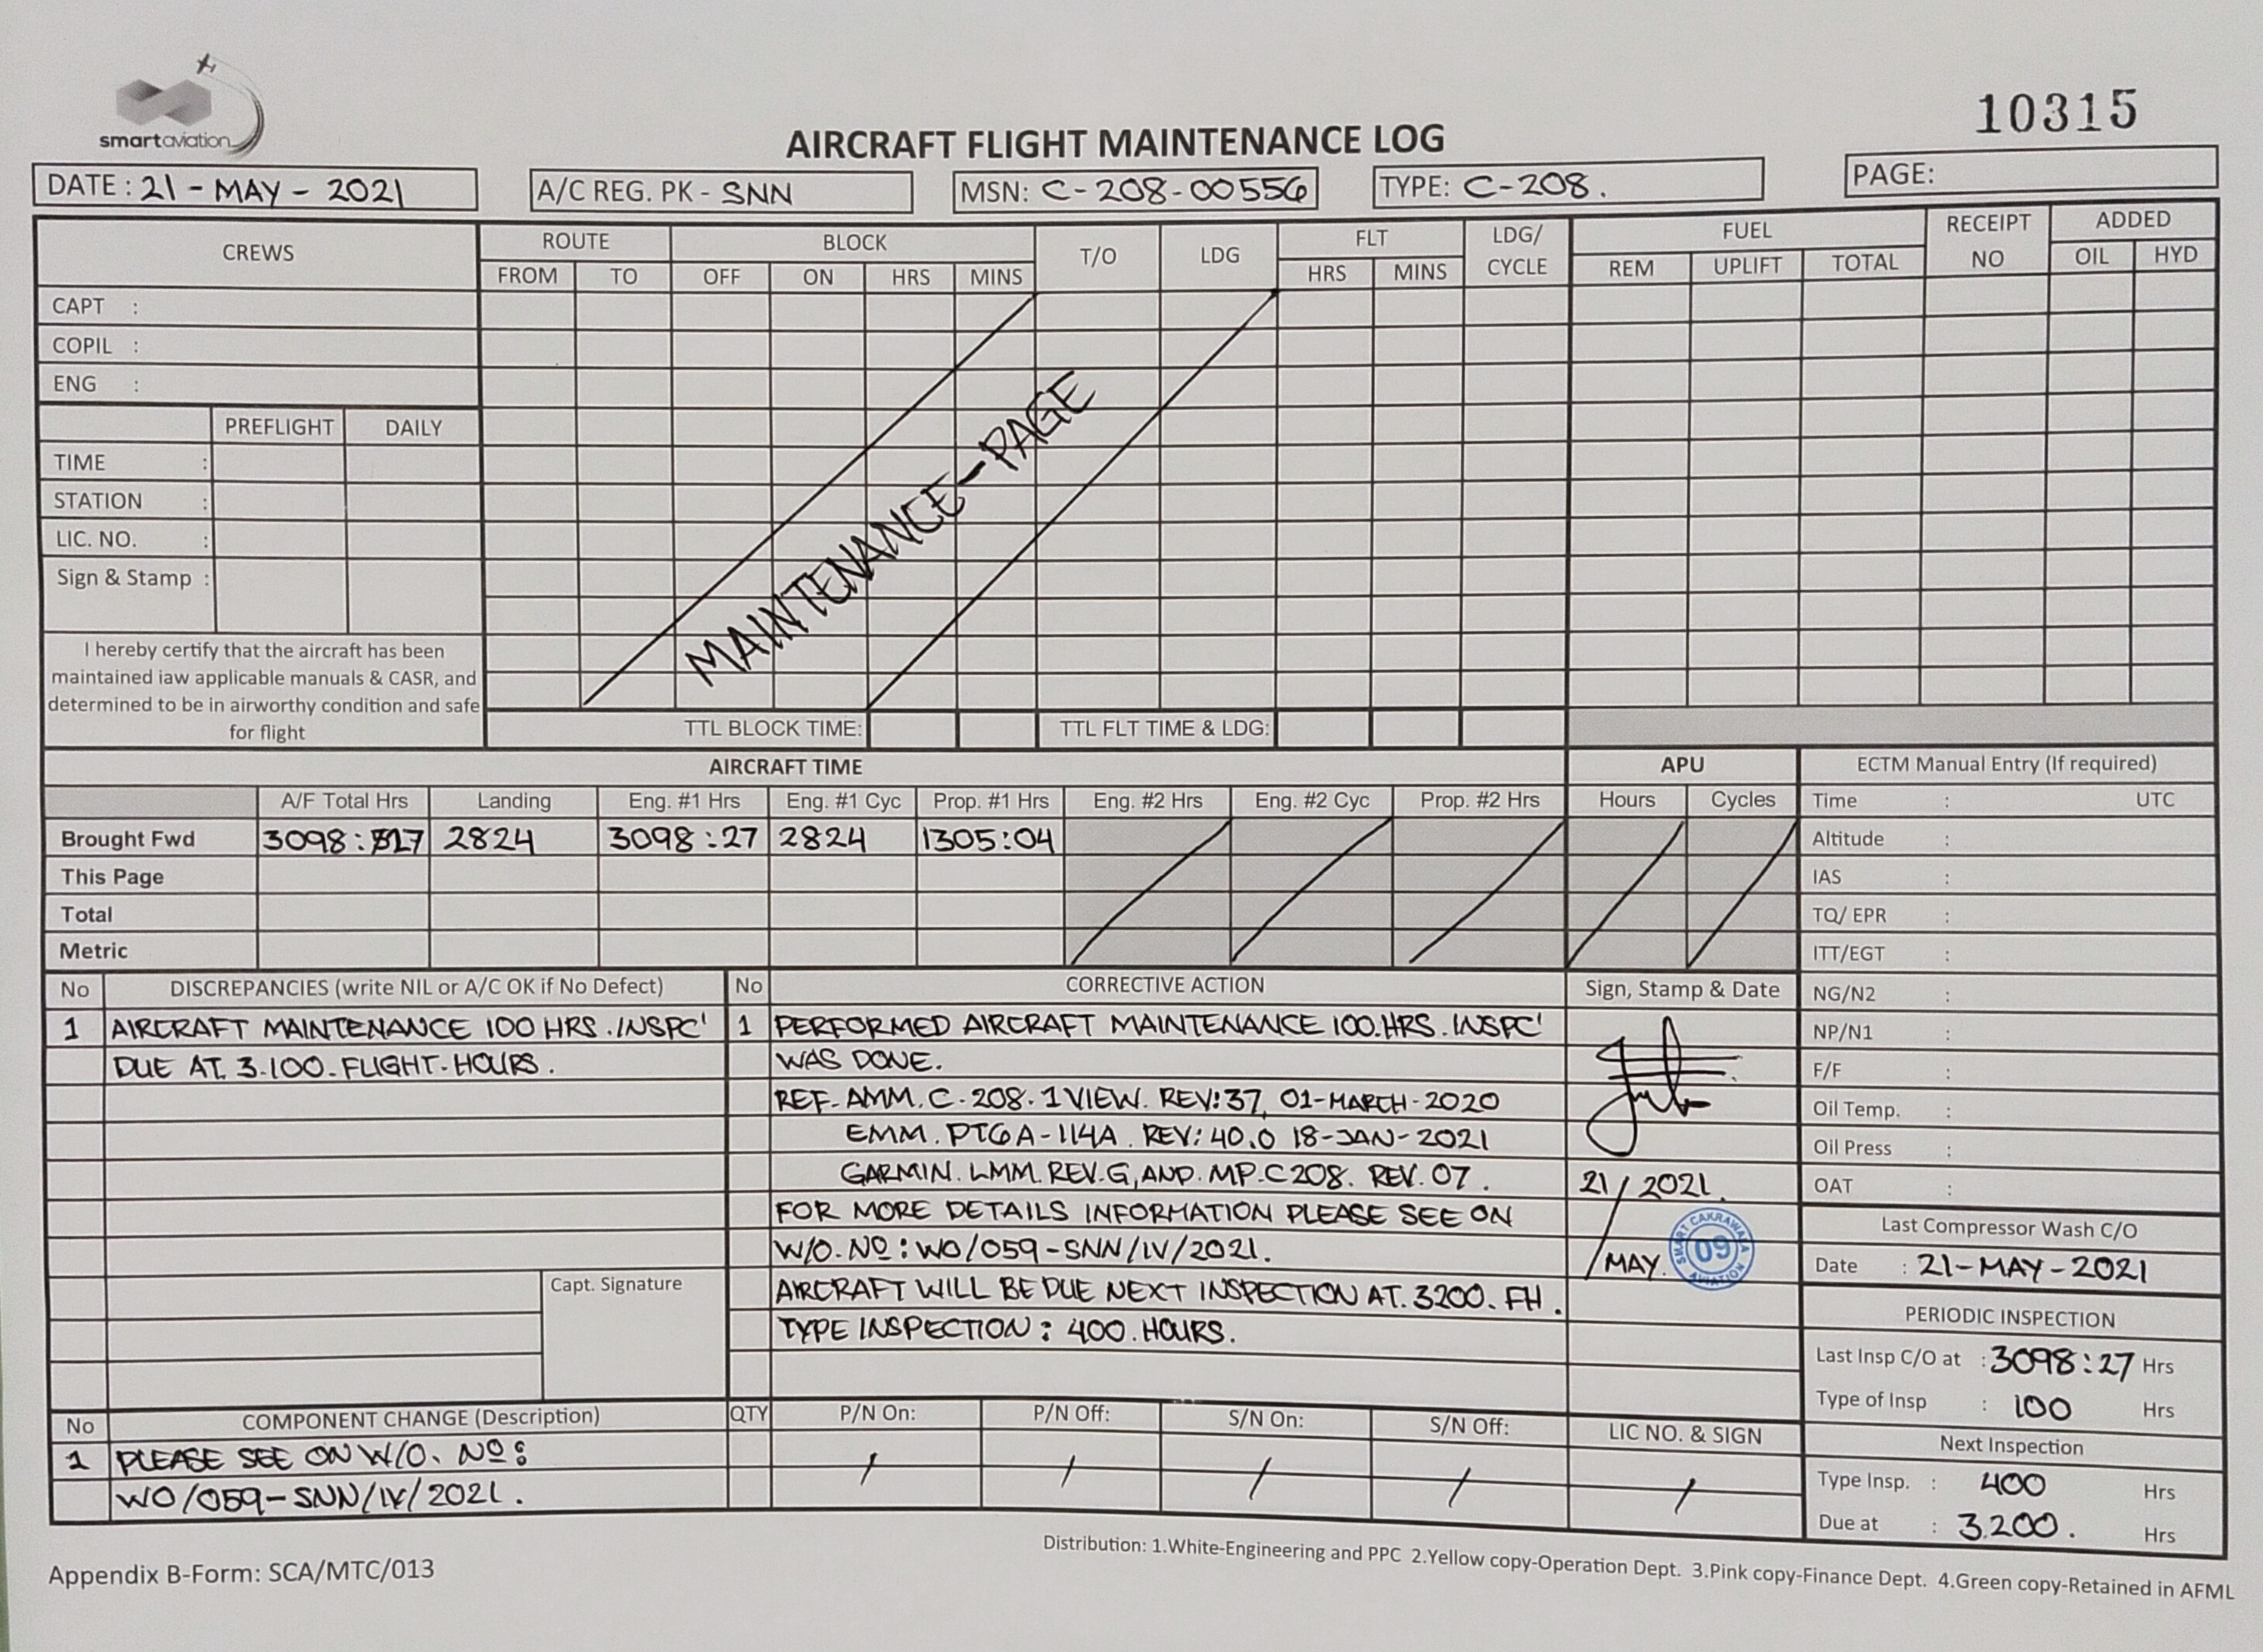 smartaviation
10315
AIRCRAFT FLIGHT MAINTENANCE LOG
DATE : 21 - MAY - 2021
A/C REG. PK - SNN
MSN: C-208-00556
TYPE: C-208.
PAGE:
CREWS
ROUTE
BLOCK
T/O
LDG
FLT
LDG/
CYCLE
FUEL
RECEIPT
NO
ADDED
FROM TO OFF ON HRS MINS HRS MINS REM UPLIFT TOTAL OIL HYD
CAPT :
COPIL :
ENG :
PREFLIGHT DAILY
TIME :
STATION :
LIC. NO. :
Sign & Stamp :
MAINTENANCE - PAGE
I hereby certify that the aircraft has been
maintained iaw applicable manuals & CASR, and
determined to be in airworthy condition and safe
for flight
TTL BLOCK TIME:
TTL FLT TIME & LDG:
AIRCRAFT TIME
APU
A/F Total Hrs Landing Eng. #1 Hrs Eng. #1 Cyc Prop. #1 Hrs Eng. #2 Hrs Eng. #2 Cyc Prop. #2 Hrs Hours Cycles
Brought Fwd 2824 3098:27 2824 1305:04
This Page
Total
Metric
ECTM Manual Entry (If required)
Time : UTC
Altitude :
IAS :
TQ/ EPR :
ITT/EGT :
NG/N2 :
NP/N1 :
F/F :
Oil Temp. :
Oil Press :
OAT :
No DISCREPANCIES (write NIL or A/C OK if No Defect)
1 AIRCRAFT MAINTENANCE 100 HRS. INSPC'
DUE AT. 3.100. FLIGHT. HOURS.
Capt. Signature
No CORRECTIVE ACTION
1 PERFORMED AIRCRAFT MAINTENANCE 100.HRS. INSPC'
WAS DONE.
REF. AMM. C-208. 1 VIEW. REV:37, 01-MARCH-2020
EMM. PT6A-114A. REV: 40.0 18-JAN-2021
GARMIN. LMM. REV. G, AND. MP. C208. REV. 07.
FOR MORE DETAILS INFORMATION PLEASE SEE ON
W/O. Nº: WO/059-SNN/IV/2021.
AIRCRAFT WILL BE DUE NEXT INSPECTION AT. 3200. FH.
TYPE INSPECTION : 400. HOURS.
Sign, Stamp & Date
21 / 2021.
/ MAY.
SMART CAKRAWALA
09
AVIATION
Last Compressor Wash C/O
Date : 21-MAY-2021
PERIODIC INSPECTION
Last Insp C/O at : 3098:27 Hrs
Type of Insp : 100 Hrs
Next Inspection
Type Insp. : 400 Hrs
Due at : 3.200. Hrs
No COMPONENT CHANGE (Description) QTY P/N On: P/N Off: S/N On: S/N Off: LIC NO. & SIGN
1 PLEASE SEE ON W/O. Nº:
WO/059-SNN/IV/2021.
Distribution: 1.White-Engineering and PPC 2.Yellow copy-Operation Dept. 3.Pink copy-Finance Dept. 4.Green copy-Retained in AFML
Appendix B-Form: SCA/MTC/013